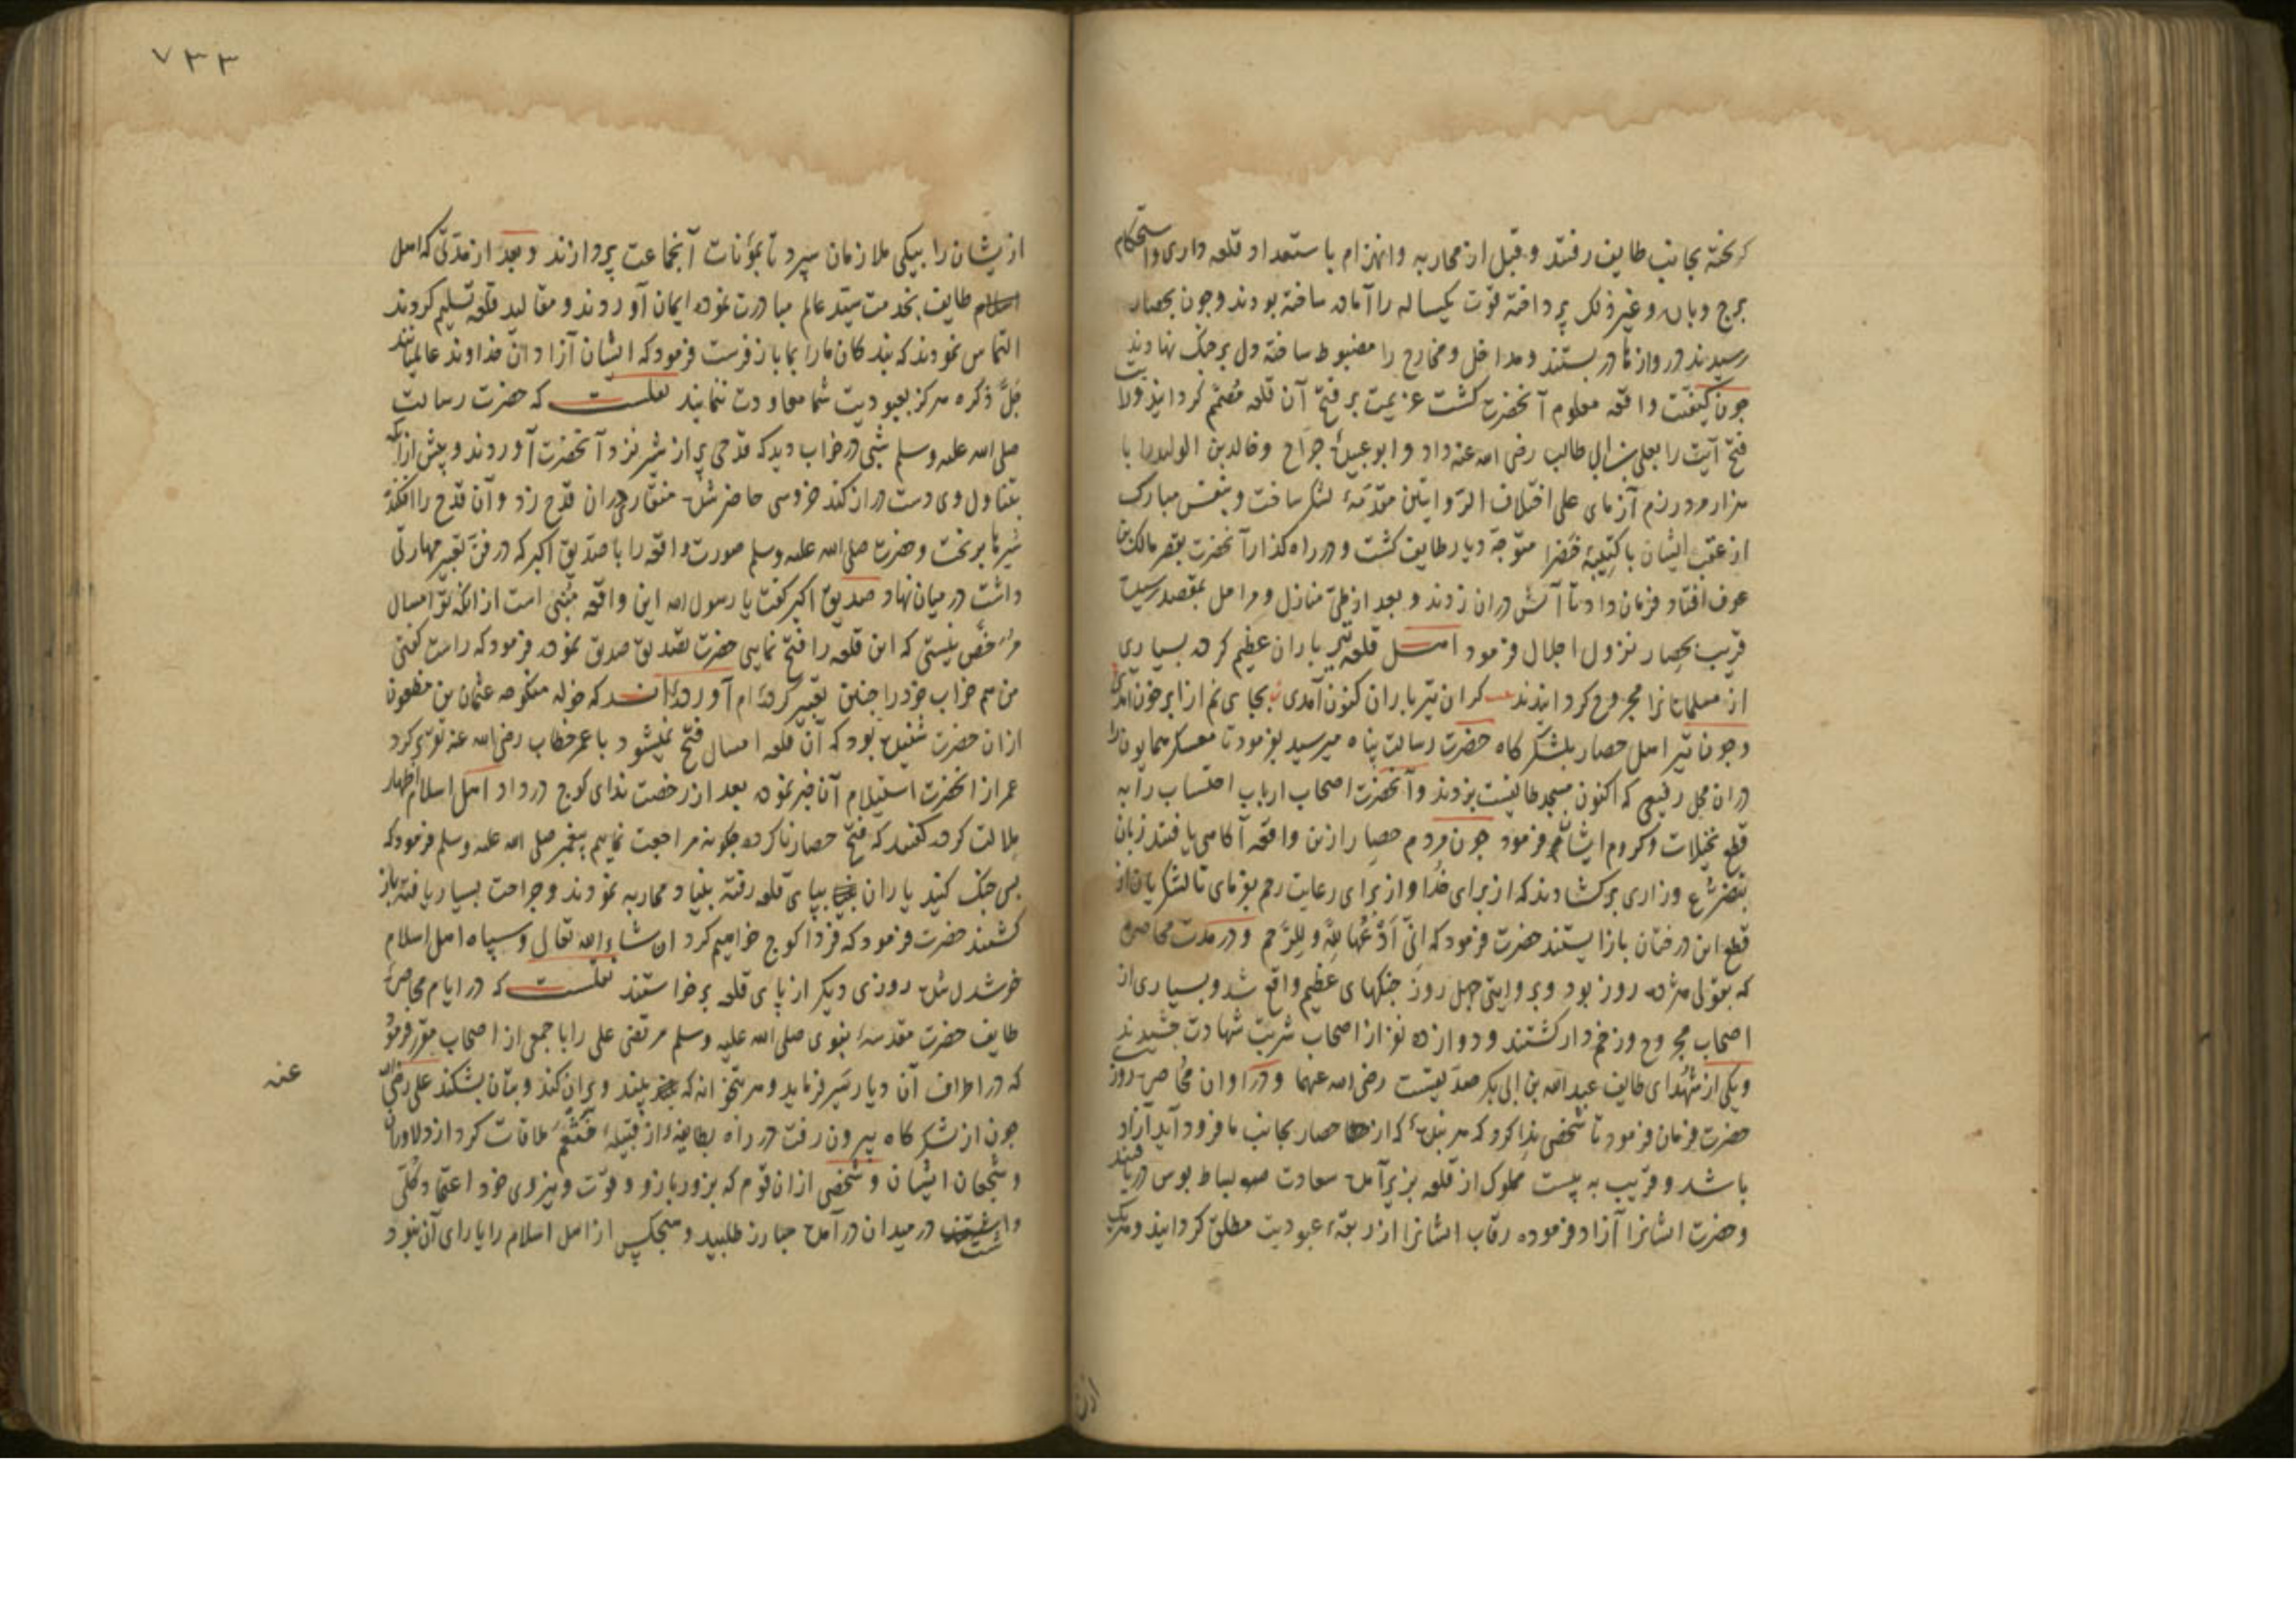 کریخته بجانب طایف رفتند و قبل از محاربه وانهزام باستعداد قلعه داری واستحکام
برج وباره وغیر ذلک پرداخته قوّت یکساله را آماده ساخته بودند وجون بحصار
رسیدند دروازها در بستند ومداخل ومخارج را مضبوط ساخته دل بر جنک نهادند
جون کیفیّت واقعه معلوم آنحضرت کشت عزیمت بر فتح آن قلعه مُصَمّم کردانید ولا
فتح آیت را بعلی بن ابی طالب رضی الله عنه داد و ابو عبیدهٔ جرّاح وخالد بن الولید را با
هزار مرد رزم آزمای علی اختلاف الرّوایتین مقدّمهٔ لشکر ساخت وبنفس مبارک
از عقب ایشان با کتیبهٔ خضرا متوجّه دیار طایف کشت و در راه کذار آنحضرت بقصر مالک بن
عوف افتاد فرمان داد تا آتش دران زدند و بعد از طیّ منازل ومراحل بمقصد رسید
قریب بحصار نزول اجلال فرمود اهل قلعه تیر باران عظیم کرده بسیاری
از مسلمانانرا مجروح کردانیدند کر ان تیر باران کنون آمدی بجای نم از ابر خون آمدی
وجون تیر اهل حصار بلشکر کاه حضرت رسالت پناه میرسید بفرمود تا معسکر همایون را
دران محل رفیعی که اکنون مسجد طایفست بزدند وآنحضرت اصحاب ارباب احتساب را به
قطع نخیلات وکروم ایشان فرمود جون مردم حصار ازین واقعه آکاهی یافتند زبان
بتضرّع وزاری برکشادند که از برای خدا و از برای رعایت رحم بفرمای تا لشکریان از
قطع این درختان باز ایستند حضرت فرمود که اِنّی اَدَعُهَا لِلّهِ و لِلرَّحِم ودر مدت محاصره
که بقولی هژده روز بود وبروایتی جهل روز جنکهای عظیم واقع شد وبسیاری از
اصحاب مجروح وزخم دار کشتند ودوازده نفر از اصحاب شربت شهادت جشیدند
ویکی از شهدای طایف عبد الله بن ابی بکر صدّیقست رضی الله عنهما ودر اوان محاصره روز
حضرت فرمان فرمود تا شخصی ندا کرد که هر بندهٔ که از حصار بجانب ما فرود آید آزاد
باشد و قریب به بیست مملوک از قلعه بزیر آمده سعادت بساط بوس دریافتند
وحضرت ایشانرا آزاد فرموده رقاب ایشانرا از ربقهٔ عبودیت مطلق کردانید وهریک
ازیشان
۷۳۳
ازیشان را بیکی ملازمان سپرد تا بمؤنات آنجماعت پردازند وبعد از مدّتی که اهل
طایف بخدمت سیّد عالم مبادرت نموده ایمان آوردند ومقالید قلعه تسلیم کردند
التماس نمودند که بندکان ما را بما باز فرست فرمود که ایشان آزادان خداوند عالمیانند
جَلَّ ذکره هرکز بعبودیت شما معاودت ننمایند نقلست که حضرت رسالت
صلی الله علیه وسلم شبی در خواب دید که قدحی پر از شیر نزد آنحضرت آوردند وپیش ازانکه
بتناول وی دست دراز کند خروسی حاضر شده منقار دران قدح زد وآن قدح را افکنده
شیرها بریخت وحضرت صلی الله علیه وسلم صورت واقعه را با صدّیق اکبر که در فنّ تعبیر مهارتی
داشت درمیان نهاد صدیق اکبر کفت یا رسول الله این واقعه مُنبی است از انکه تو امسال
مرخّص نیستی که این قلعه را فتح نمایی حضرت تصدیق صدق نموده فرمود که راست کفتی
من هم خواب خود را جنین تعبیر کرده ام آورده اند که خوله منکوحه عثمان بن مظعون
ازان حضرت شنیده بود که آن قلعه امسال فتح نمیشود با عمر خطاب رضی الله عنه تقریر کرد
عمر از انحضرت استعلام آن خبر نموده بعد از رخصت ندای کوج در داد اهل اسلام اظهار
ملالت کرده کفتند که فتح حصار ناکرده جکونه مراجعت نماییم پیغمبر صلی الله علیه وسلم فرمود که
پس جنک کنید یاران بپای قلعه رفته بنیاد محاربه نمودند وجراحت بسیار یافته باز
کشتند حضرت فرمود که فردا کوج خواهیم کرد ان شاء الله تعالی وسپاه اهل اسلام
خرشدل شده روزی دیکر از پای قلعه برخواستند نقلست که در ایام محاصرهٔ
طایف حضرت مقدسهٔ نبوی صلی الله علیه وسلم مرتضی علی را با جمعی از اصحاب مقرّر فرمود
که در اطراف آن دیار سَیر فرماید وهر بتخانه که بیند ویران کند وبتان بشکند علی رضی الله
عنه
جون از لشکر کاه بیرون رفت در راه بطایفهٔ از قبیلهٔ خَثعَم ملاقات کرد از دلاوران
وشجعان ایشان وشخصی ازان قوم که بزور بازو وقوّت ونیروی خود اعتماد کلّی
داشت درمیدان در آمده مبارز طلبید وهیجکس از اهل اسلام را یارای آن نبود